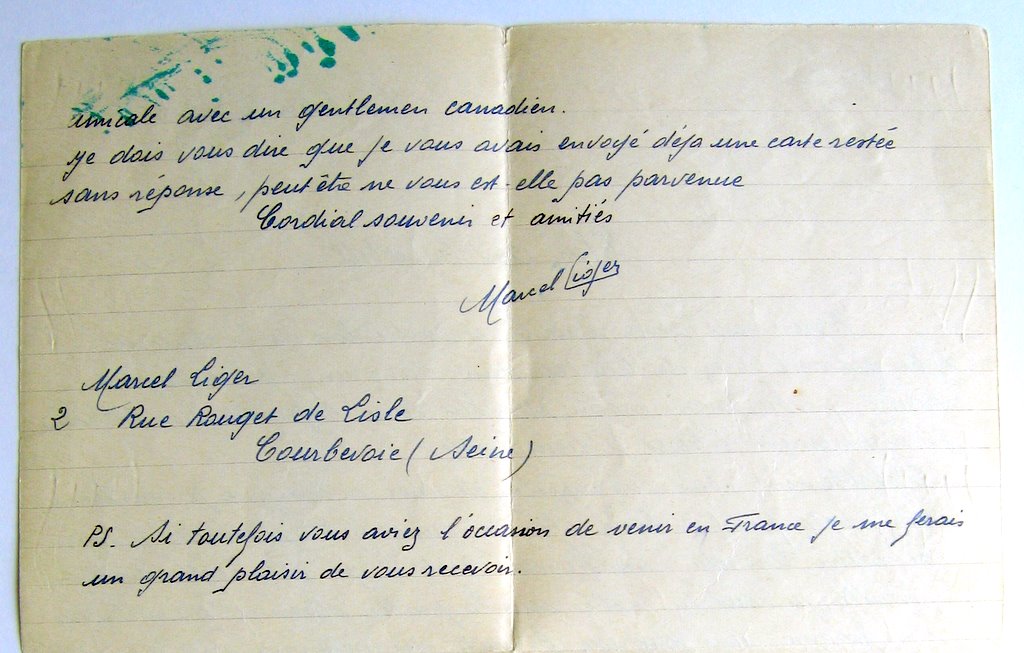 amicale avec un gentlemen canadien.
Je dois vous dire que je vous avais envoyé déja une carte restée
sans réponse, peut être ne vous est-elle pas parvenue
Cordial souvenir et amitiés
Marcel Liger
Marcel Liger
2 Rue Rouget de Lisle
Courbevoie (Seine)
PS. Si toutefois vous aviez l'occasion de venir en France je me ferais
un grand plaisir de vous recevoir.